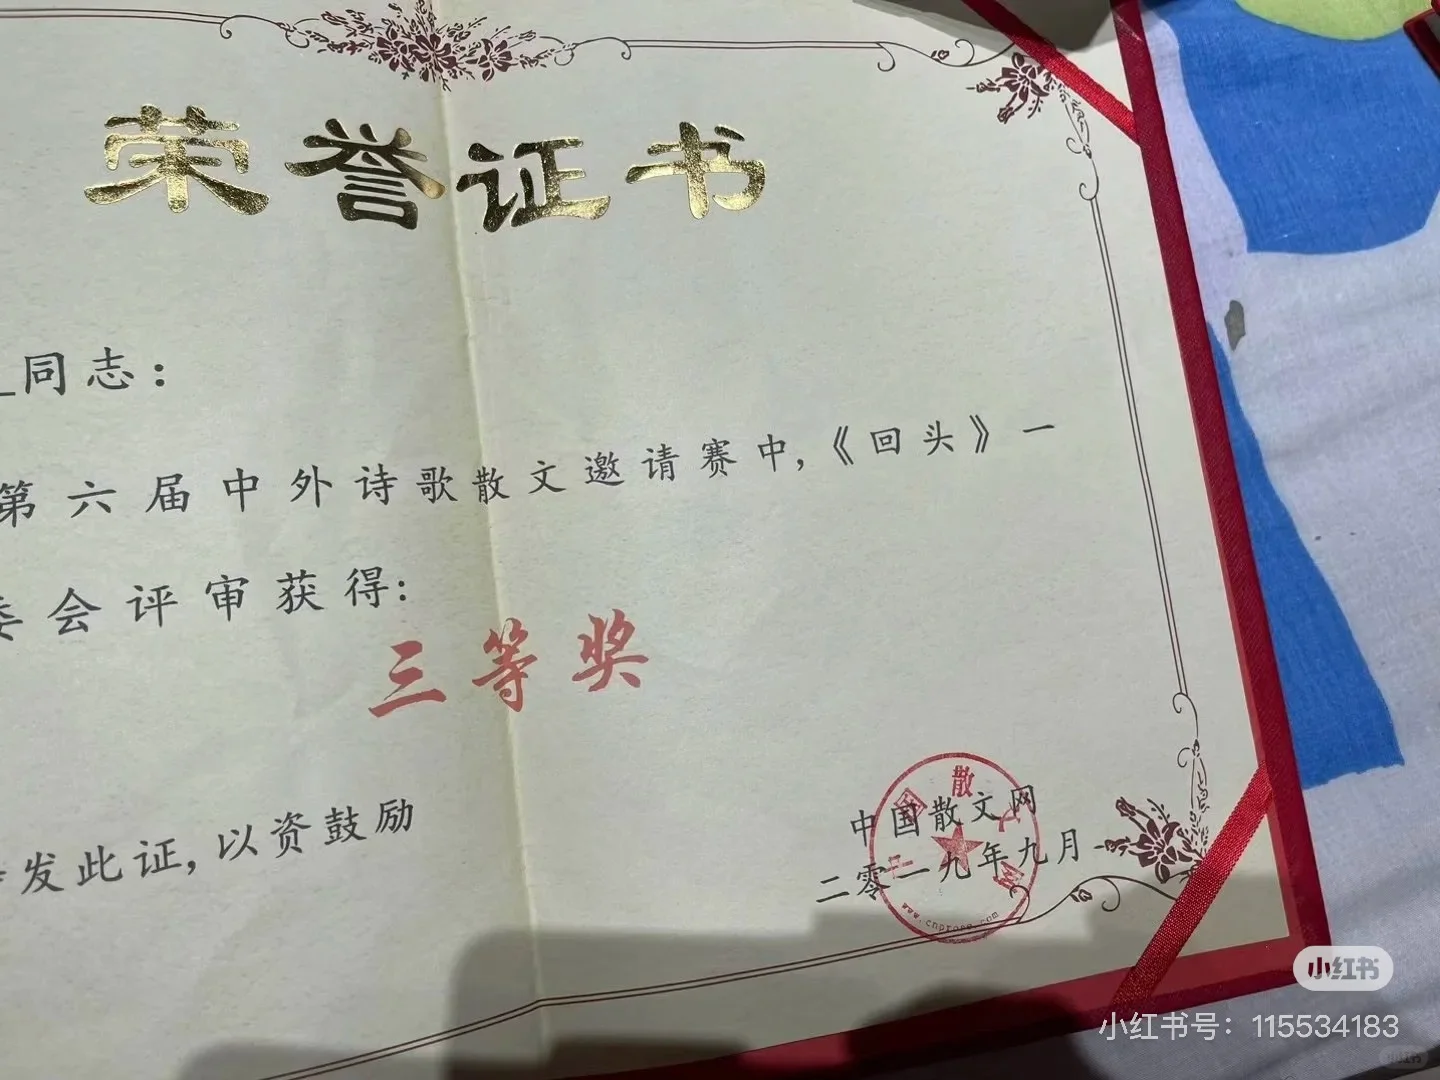 荣誉证书
同志：
第六届中外诗歌散文邀请赛中，《回头》一
委会评审获得：
三等奖
发此证，以资鼓励
中国散文网
二零一九年九月
中国散文网
小红书
小红书号：115534183